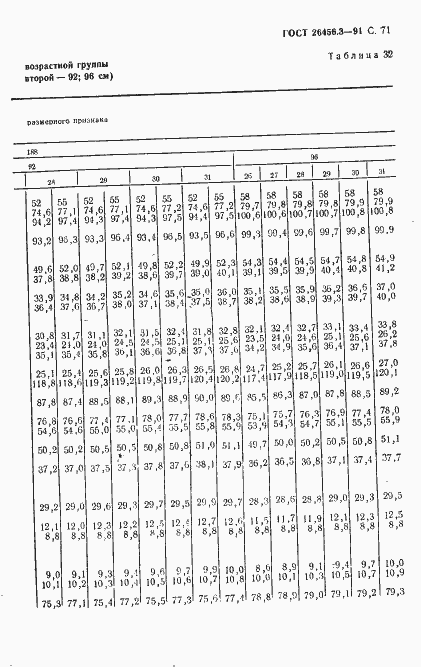 ГОСТ 26456.3—91 С. 71
Таблица 32
возрастной группы
второй — 92; 96 см)
размерного признака
188
92 96
28 29 30 31 26 27 28 29 30 31
52 55 52 55 52 55 52 55 58 58 58 58 58 58
74,6 77,1 74,6 77,1 74,6 77,2 74,6 77,2 79,7 79,8 79,8 79,8 79,9 79,9
94,2 97,4 94,3 97,4 94,3 97,5 94,4 97,5 100,6 100,6 100,7 100,7 100,8 100,8
93,2 96,3 93,3 96,4 93,4 96,5 93,5 96,6 99,3 99,4 99,6 99,7 99,8 99,9
49,6 52,0 49,7 52,1 49,8 52,2 49,9 52,3 54,3 54,4 54,5 54,7 54,8 54,9
37,8 38,8 38,2 39,2 38,6 39,7 39,0 40,1 39,1 39,5 39,9 40,4 40,8 41,2
33,9 34,8 34,2 35,2 34,6 35,6 35,0 36,0 35,1 35,5 35,9 36,2 36,6 37,0
36,4 37,6 36,7 38,0 37,1 38,4 37,5 38,7 38,2 38,6 38,9 39,3 39,7 40,0
30,8 31,7 31,1 32,1 31,5 32,4 31,8 32,8 32,1 32,4 32,7 33,1 33,4 33,8
23,4 24,0 24,0 24,5 24,5 25,1 25,1 25,6 23,5 24,0 24,6 25,1 25,6 26,2
35,1 35,4 35,8 36,1 36,6 36,8 37,3 37,6 34,2 34,9 35,6 36,4 37,1 37,8
25,1 25,4 25,6 25,8 26,0 26,3 26,5 26,8 24,7 25,2 25,7 26,1 26,6 27,0
118,8 118,6 119,3 119,2 119,8 119,7 120,4 120,2 117,4 117,9 118,5 119,0 119,5 120,1
87,8 87,4 88,5 88,1 89,3 88,9 90,0 89,6 85,5 86,3 87,0 87,8 88,5 89,2
76,8 76,6 77,4 77,1 78,0 77,7 78,6 78,3 75,1 75,7 76,3 76,9 77,4 78,0
54,6 54,6 55,0 55,0 55,4 55,5 55,8 55,9 53,9 54,3 54,7 55,1 55,5 55,9
50,2 50,2 50,5 50,5 50,8 50,8 51,0 51,1 49,7 50,0 50,2 50,5 50,8 51,1
37,2 37,0 37,5 37,3 37,8 37,6 38,1 37,9 36,2 36,5 36,8 37,1 37,4 37,7
29,2 29,0 29,6 29,3 29,7 29,5 29,9 29,7 28,3 28,6 28,8 29,0 29,3 29,5
12,1 12,0 12,3 12,2 12,5 12,4 12,7 12,6 11,5 11,7 11,9 12,1 12,3 12,5
8,8 8,8 8,8 8,8 8,8 8,8 8,8 8,8 8,8 8,8 8,8 8,8 8,8 8,8
9,0 9,1 9,3 9,4 9,6 9,7 9,9 10,0 8,6 8,9 9,1 9,4 9,7 10,0
10,1 10,2 10,3 10,4 10,5 10,6 10,7 10,8 10,0 10,1 10,3 10,5 10,7 10,9
75,3 77,1 75,4 77,2 75,5 77,3 75,6 77,4 78,8 78,9 79,0 79,1 79,2 79,3